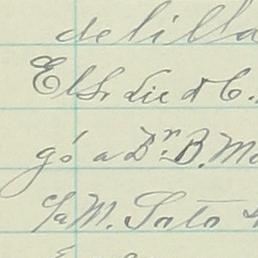 de lilla
El Sr Lic d C.
gó a Dn. B. Mo
c/a M. Soto